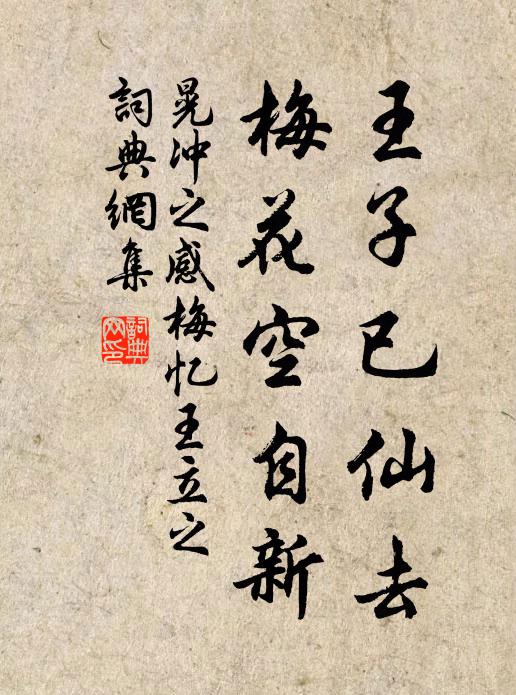 王子已仙去
梅花空自新
晁冲之感梅忆王立之
詞典網集
詞典
网印